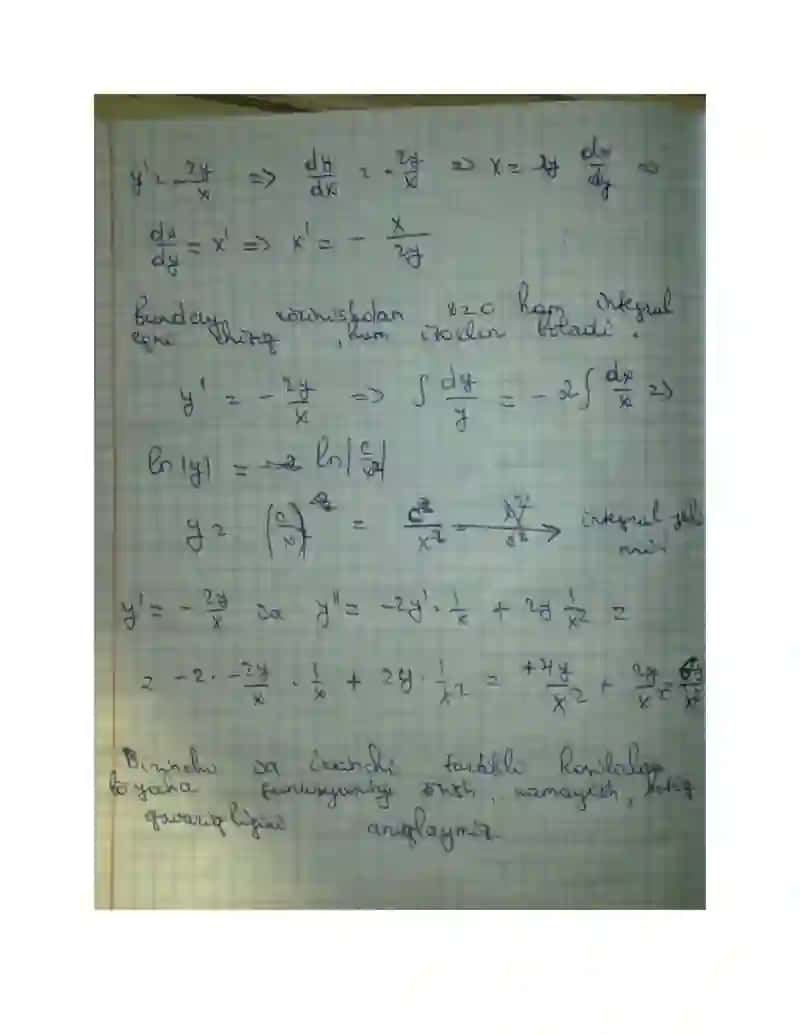 y' = - 2y/x => dy/dx = - 2y/x => x = 2y dx/dy =>
dx/dy = x' => x' = - x/2y
Bunday x=0 ham integral
egri chiziq , ham izoklin bo'ladi .
y' = - 2y/x => ∫ dy/y = -2 ∫ dx/x =>
ln |y| = ln |c/x²|
y = (c/x)² = c²/x² integral
y' = - 2y/x va y'' = -2y' · 1/x + 2y 1/x² =
= -2 · -2y/x · 1/x + 2y · 1/x² = +4y/x² + 2y/x² = 6y/x²
Birinchi va ikkinchi tartibli hosilalar
bo'yicha funksiyaning o'sish , kamayish , botiq
qavariqligini aniqlaymiz.